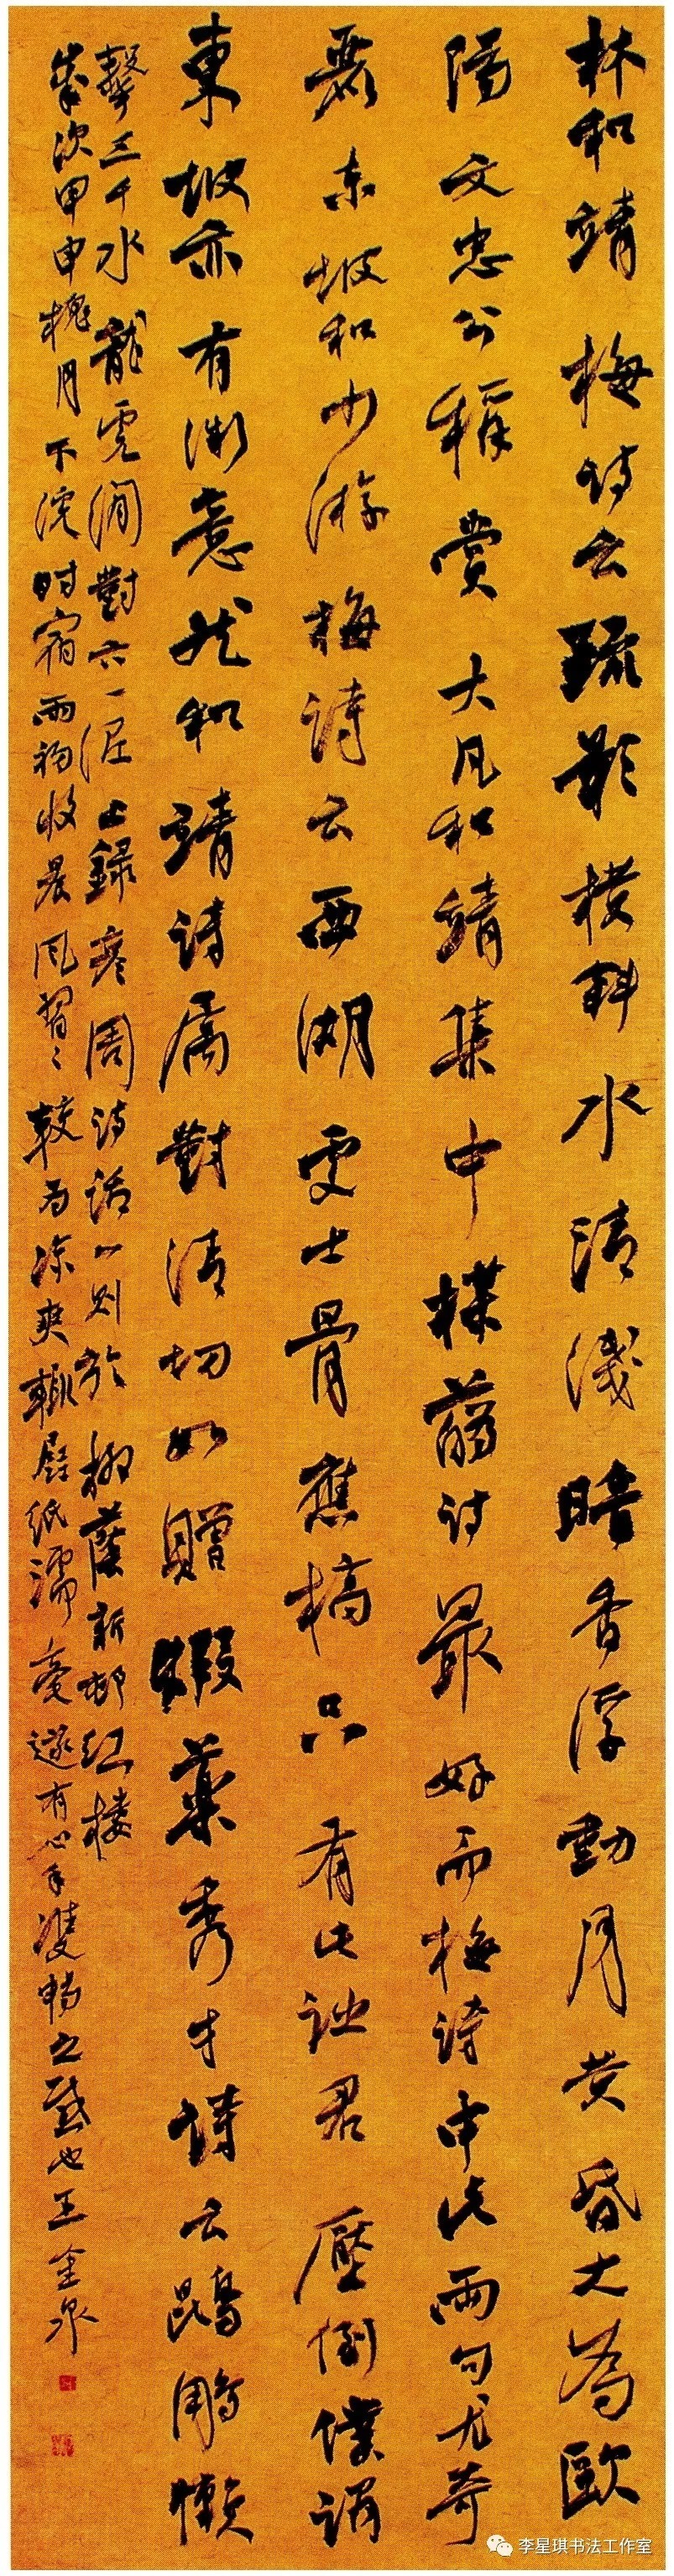 林和靖梅诗云疏影横斜水清浅暗香浮動月黄昏大為歐
陽文忠公稱賞大凡和靖集中诗最好而梅詩中此兩句尤奇
麗東坡和少游梅詩云西湖處士骨應槁只有此詩君壓倒僕謂
東坡亦有微意然和靖詩屬對清切如贈煆藥秀才詩云鵾鵬懶
擊三千水龍虎閒對六一泥上録彦周诗話一则於柳蔭新邨红樓
歲次甲申槐月下浣时宿雨初收晨風習〻較为凉爽輒展纸濡毫遂有心手雙暢之感也王金泉
李星琪书法工作室